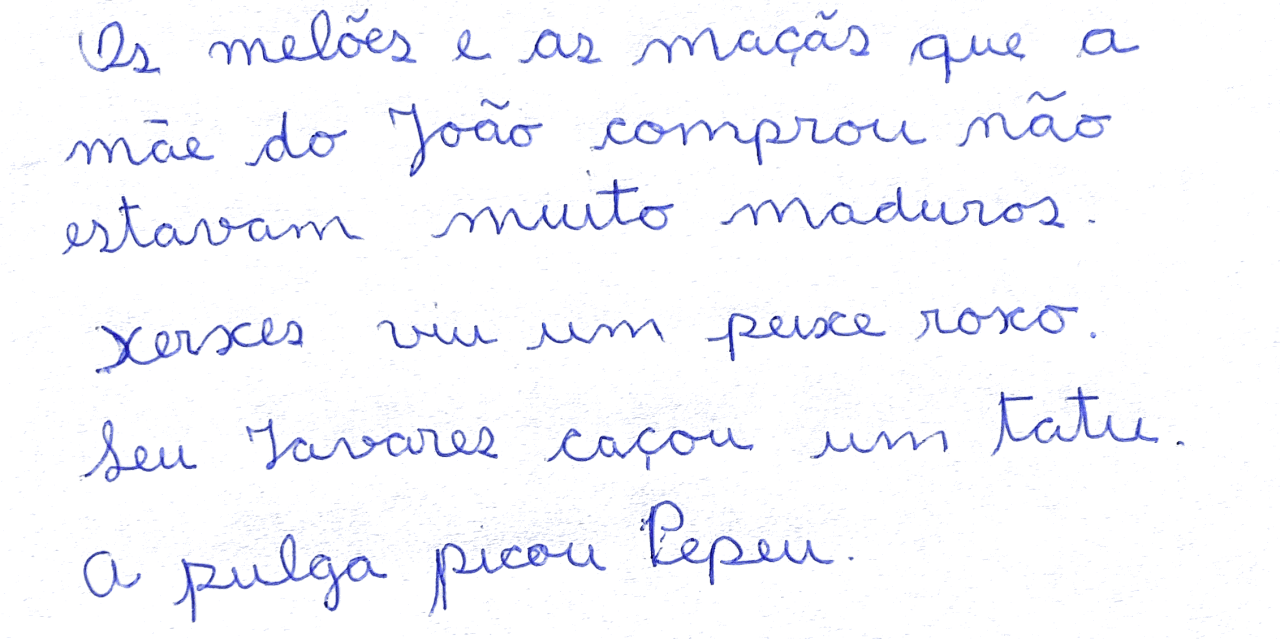 Os melões e as maçãs que a
mãe do João comprou não
estavam muito maduros.
Xerxes viu um peixe roxo.
Seu Tavares caçou um tatu.
A pulga picou Pepeu.